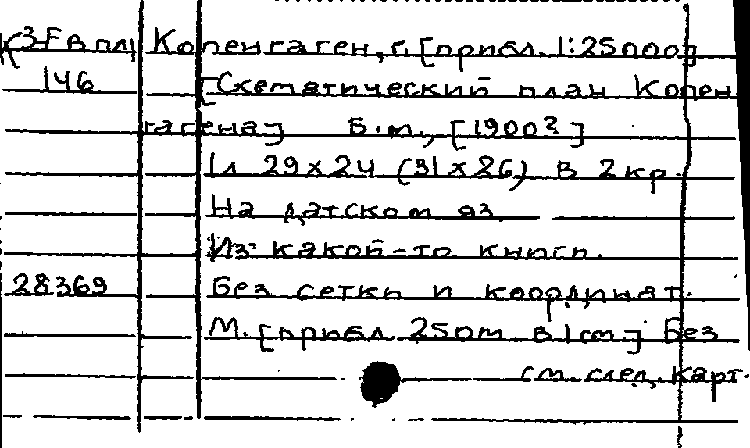 К3-Евпл Копенгаген, г. [прибл. 1:25000]
146 [Схематический план Копен
гагена] Б.м., [1900?]
1л 29x24 (31x26) в 2 кр.
На датском яз
Из какой-то книги.
28369 Без сетки и координат.
М. [прибл 250m в 1cm] Без
см. след. карт.